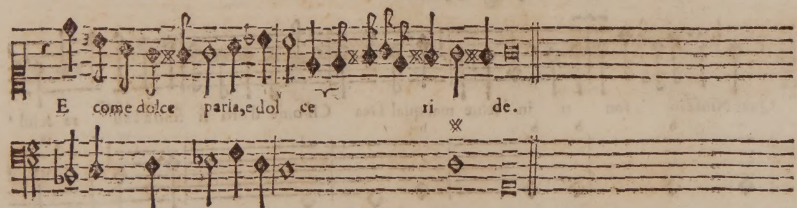 E come dolce parla, e dol ce ri de.